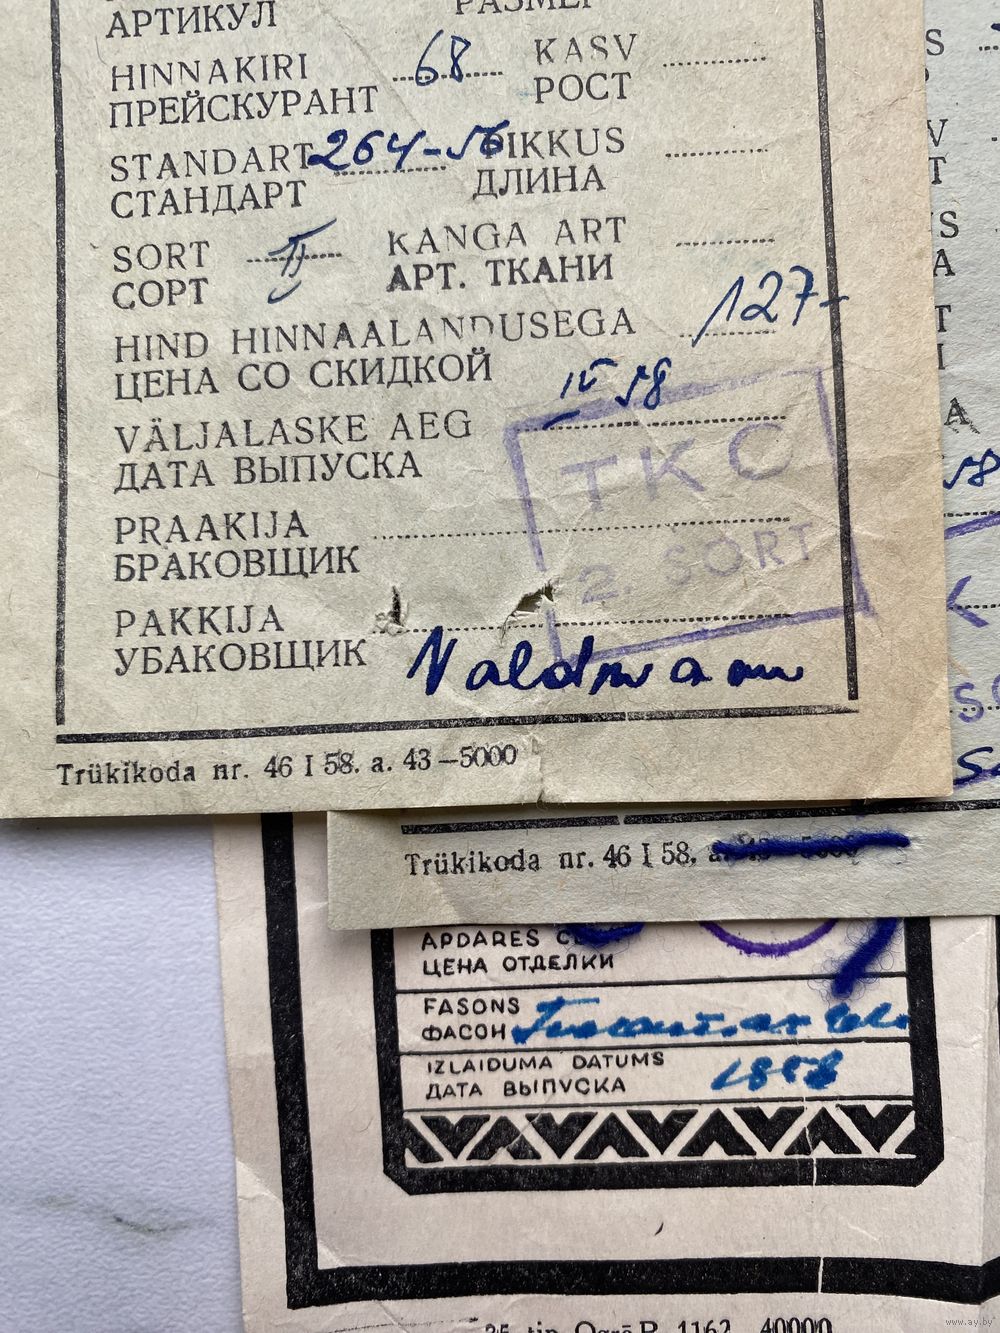 АРТИКУЛ
HINNAKIRI 68 KASV
ПРЕЙСКУРАНТ РОСТ
STANDART 264-56 PIKKUS
СТАНДАРТ ДЛИНА
SORT II KANGA ART
СОРТ АРТ. ТКАНИ
HIND HINNAALANDUSEGA 127-
ЦЕНА СО СКИДКОЙ
VÄLJALASKE AEG IV 58
ДАТА ВЫПУСКА
TKC
PRAAKIJA
БРАКОВЩИК
2. SORT
PAKKIJA
УБАКОВЩИК
Trükikoda nr. 46 I 58. a. 43—5000
Trükikoda nr. 46 I 58.
APDARES
ЦЕНА ОТДЕЛКИ
FASONS
ФАСОН
IZLAIDUMA DATUMS
ДАТА ВЫПУСКА 1958
tip. Ogrē R. 1162 40000
www.ay.by